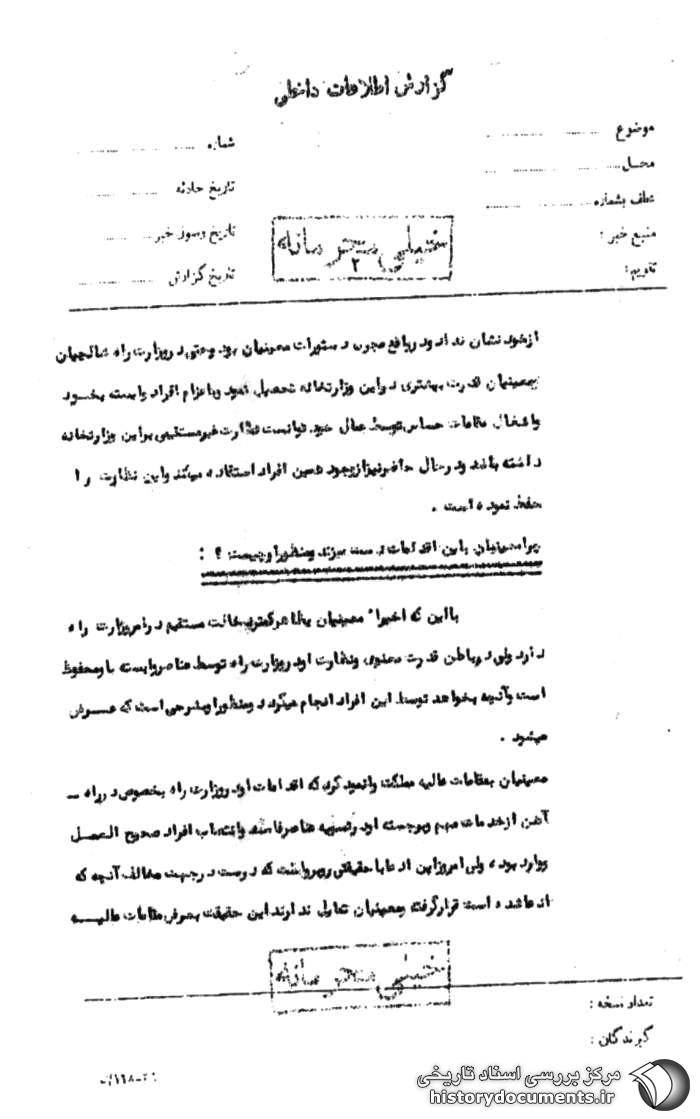 گزارش اطلاعات داخلی
موضوع
شماره
محل
تاریخ حادثه
عطف بشماره
تاریخ وصول خبر
منبع خبر :
تاریخ گزارش
تقویم :
خیلی محرمانه
۲
ازخود نشان نداد و درواقع مجری دستورات معینیان بود وحتی در وزارت راه شالچیان
معینیان قدرت بیشتری در این وزارتخانه تحصیل نمود وبا اعزام افراد وابسته بخود
واشغال مقامات حساس توسط عمال خود توانست نظارت غیرمستقیمی براین وزارتخانه
داشته باشد و درحال حاضر نیز ازوجود همین افراد استفاده میکند واین نظارت را
حفظ نموده است .
چرا معینیان باین اقدامات دست میزند ومنظور او چیست ؟ :
بااین که اخیراً معینیان بظاهر کمتر دخالت مستقیم در امر وزارت راه
دارد ولی در باطن قدرت معنوی ونظارت او در وزارت راه توسط عناصر وابسته باو محفوظ
است وآنچه بخواهد توسط این افراد انجام میگردد ومنظور او بشرحی است که عرض
میشود .
معینیان بمقامات عالیه مملکت وانمود کرده که اقدامات او در وزارت راه بخصوص در راه ـ
آهن از خدمات مهم وبرجسته او در تصفیه عناصر فاسد وانتصاب افراد صحیح العمل
بوده ولی امروز این ادعا با حقیقتی روبروست که درست در جهت مخالف آنچه که
ادعا شده است قرارگرفته ومعینیان تمایل ندارند این حقیقت بعرض مقامات عالیه
خیلی محرمانه
تعداد نسخه :
گیرندگان :
مرکز بررسی اسناد تاریخی
historydocuments.ir